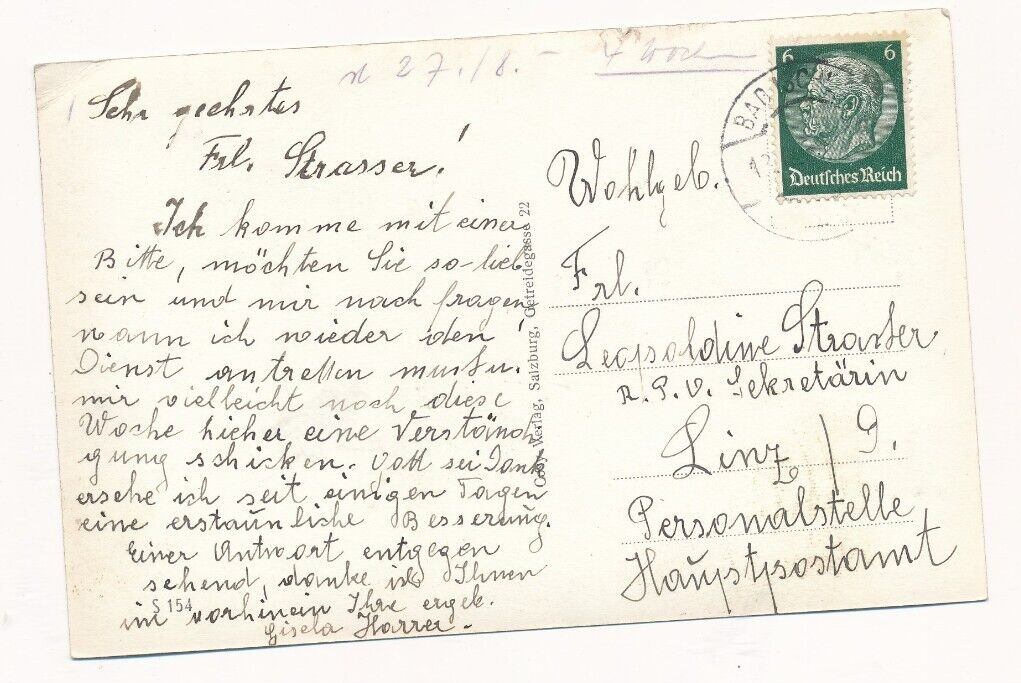 27./8. - 4 Woch
Sehr geehrtes
Frl. Strasser!
Ich komme mit einer
Bitte, möchten Sie so lieb
sein und mir nach fragen,
wann ich wieder den
Dienst antretten muss u.
mir vielleicht noch diese
Woche hieher eine Verständi
gung schicken. Gott sei Dank
ersehe ich seit einigen Tagen
eine erstaunliche Besserung.
Einer Antwort entgegen
sehend, danke ich Ihnen
im vorhinein Ihre ergeb.
Gisela Harrer.
S 154
Cosy Verlag, Salzburg, Getreidegasse 22
6 6
Deutsches Reich
BAD
Wohlgeb.
Frl.
Leopoldine Strasser
R. P. V. Sekretärin
Linz / D.
Personalstelle
Hauptpostamt